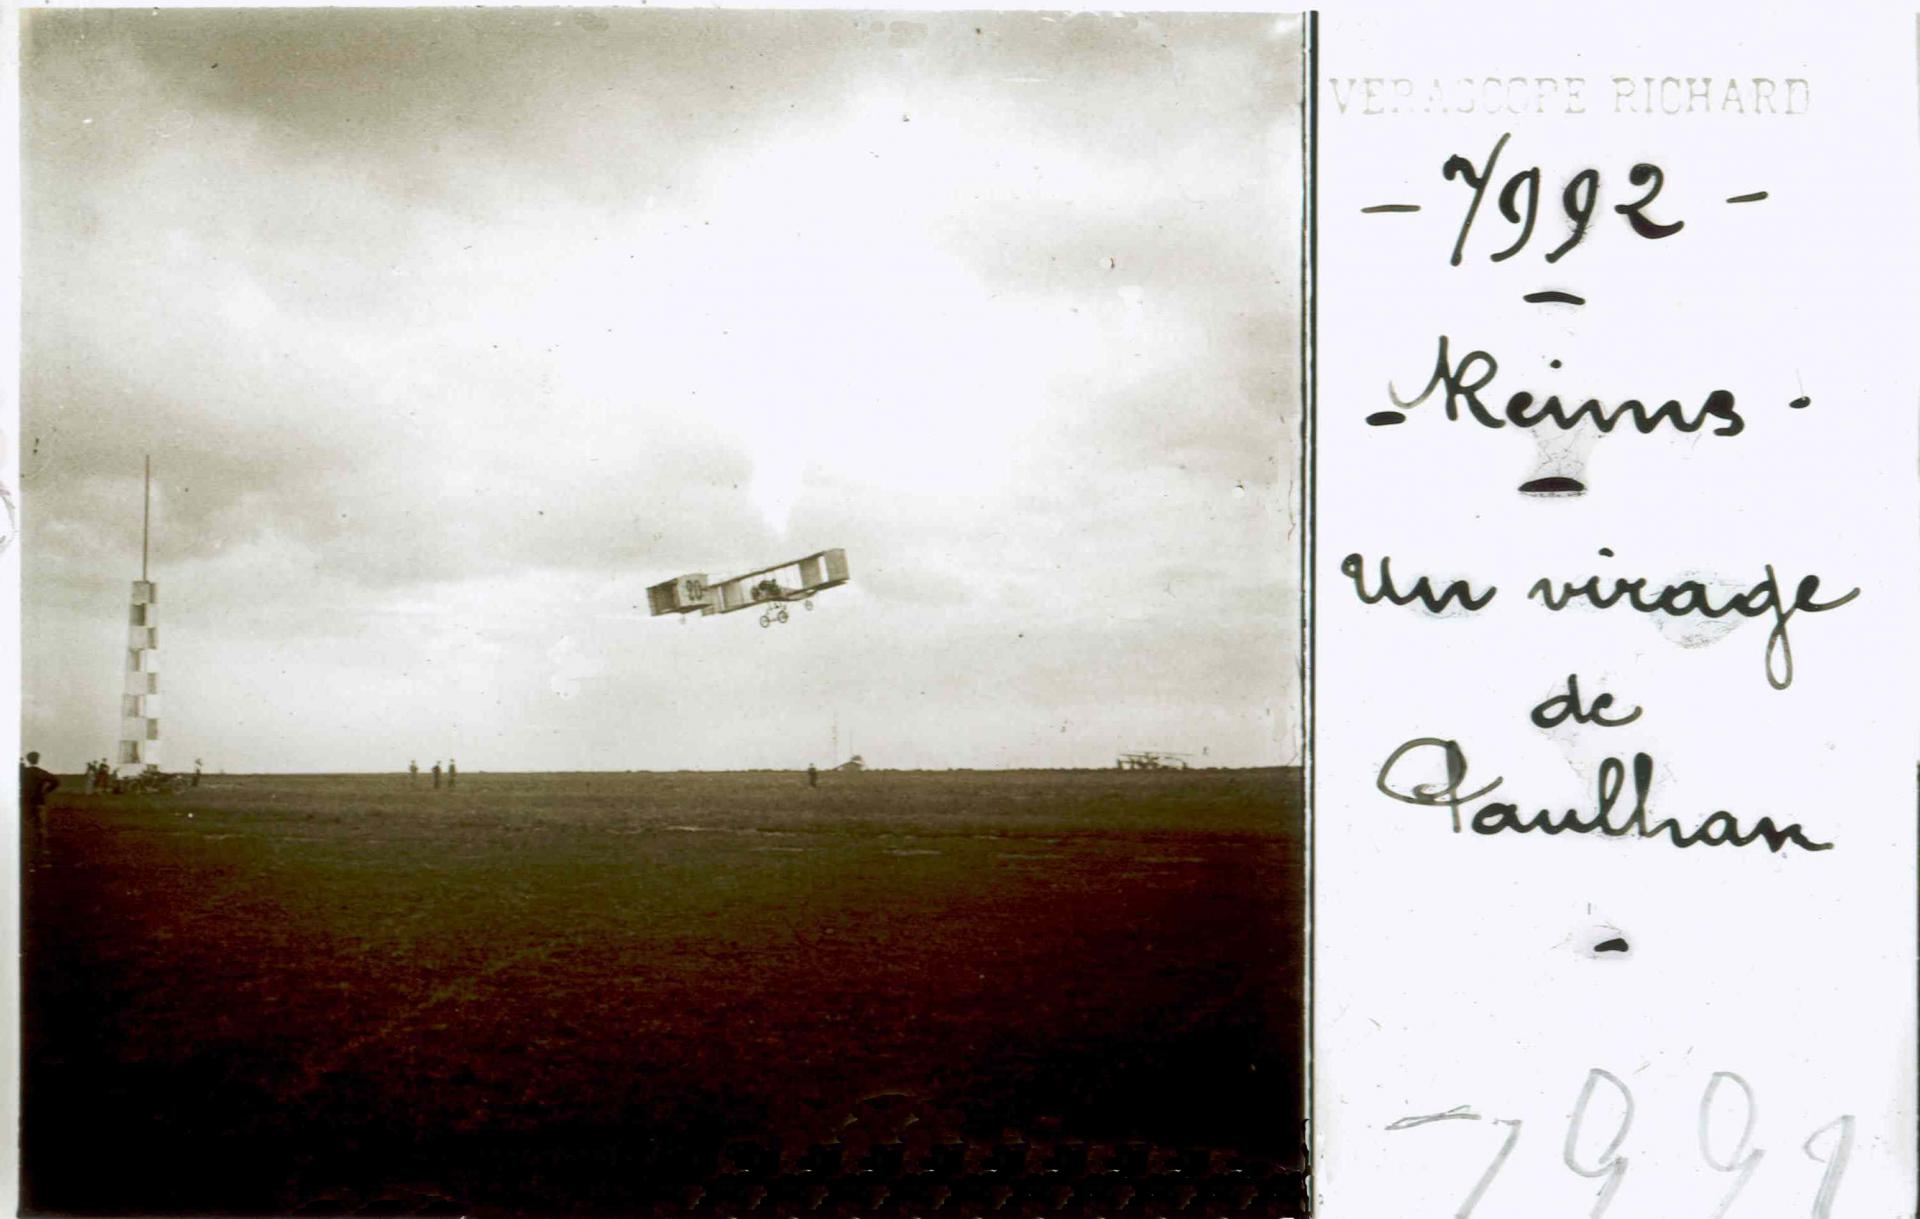 VERASCOPE RICHARD
- 7992 -
-
- Reims -
-
Un virage
de
Paulhan
-
7992
20